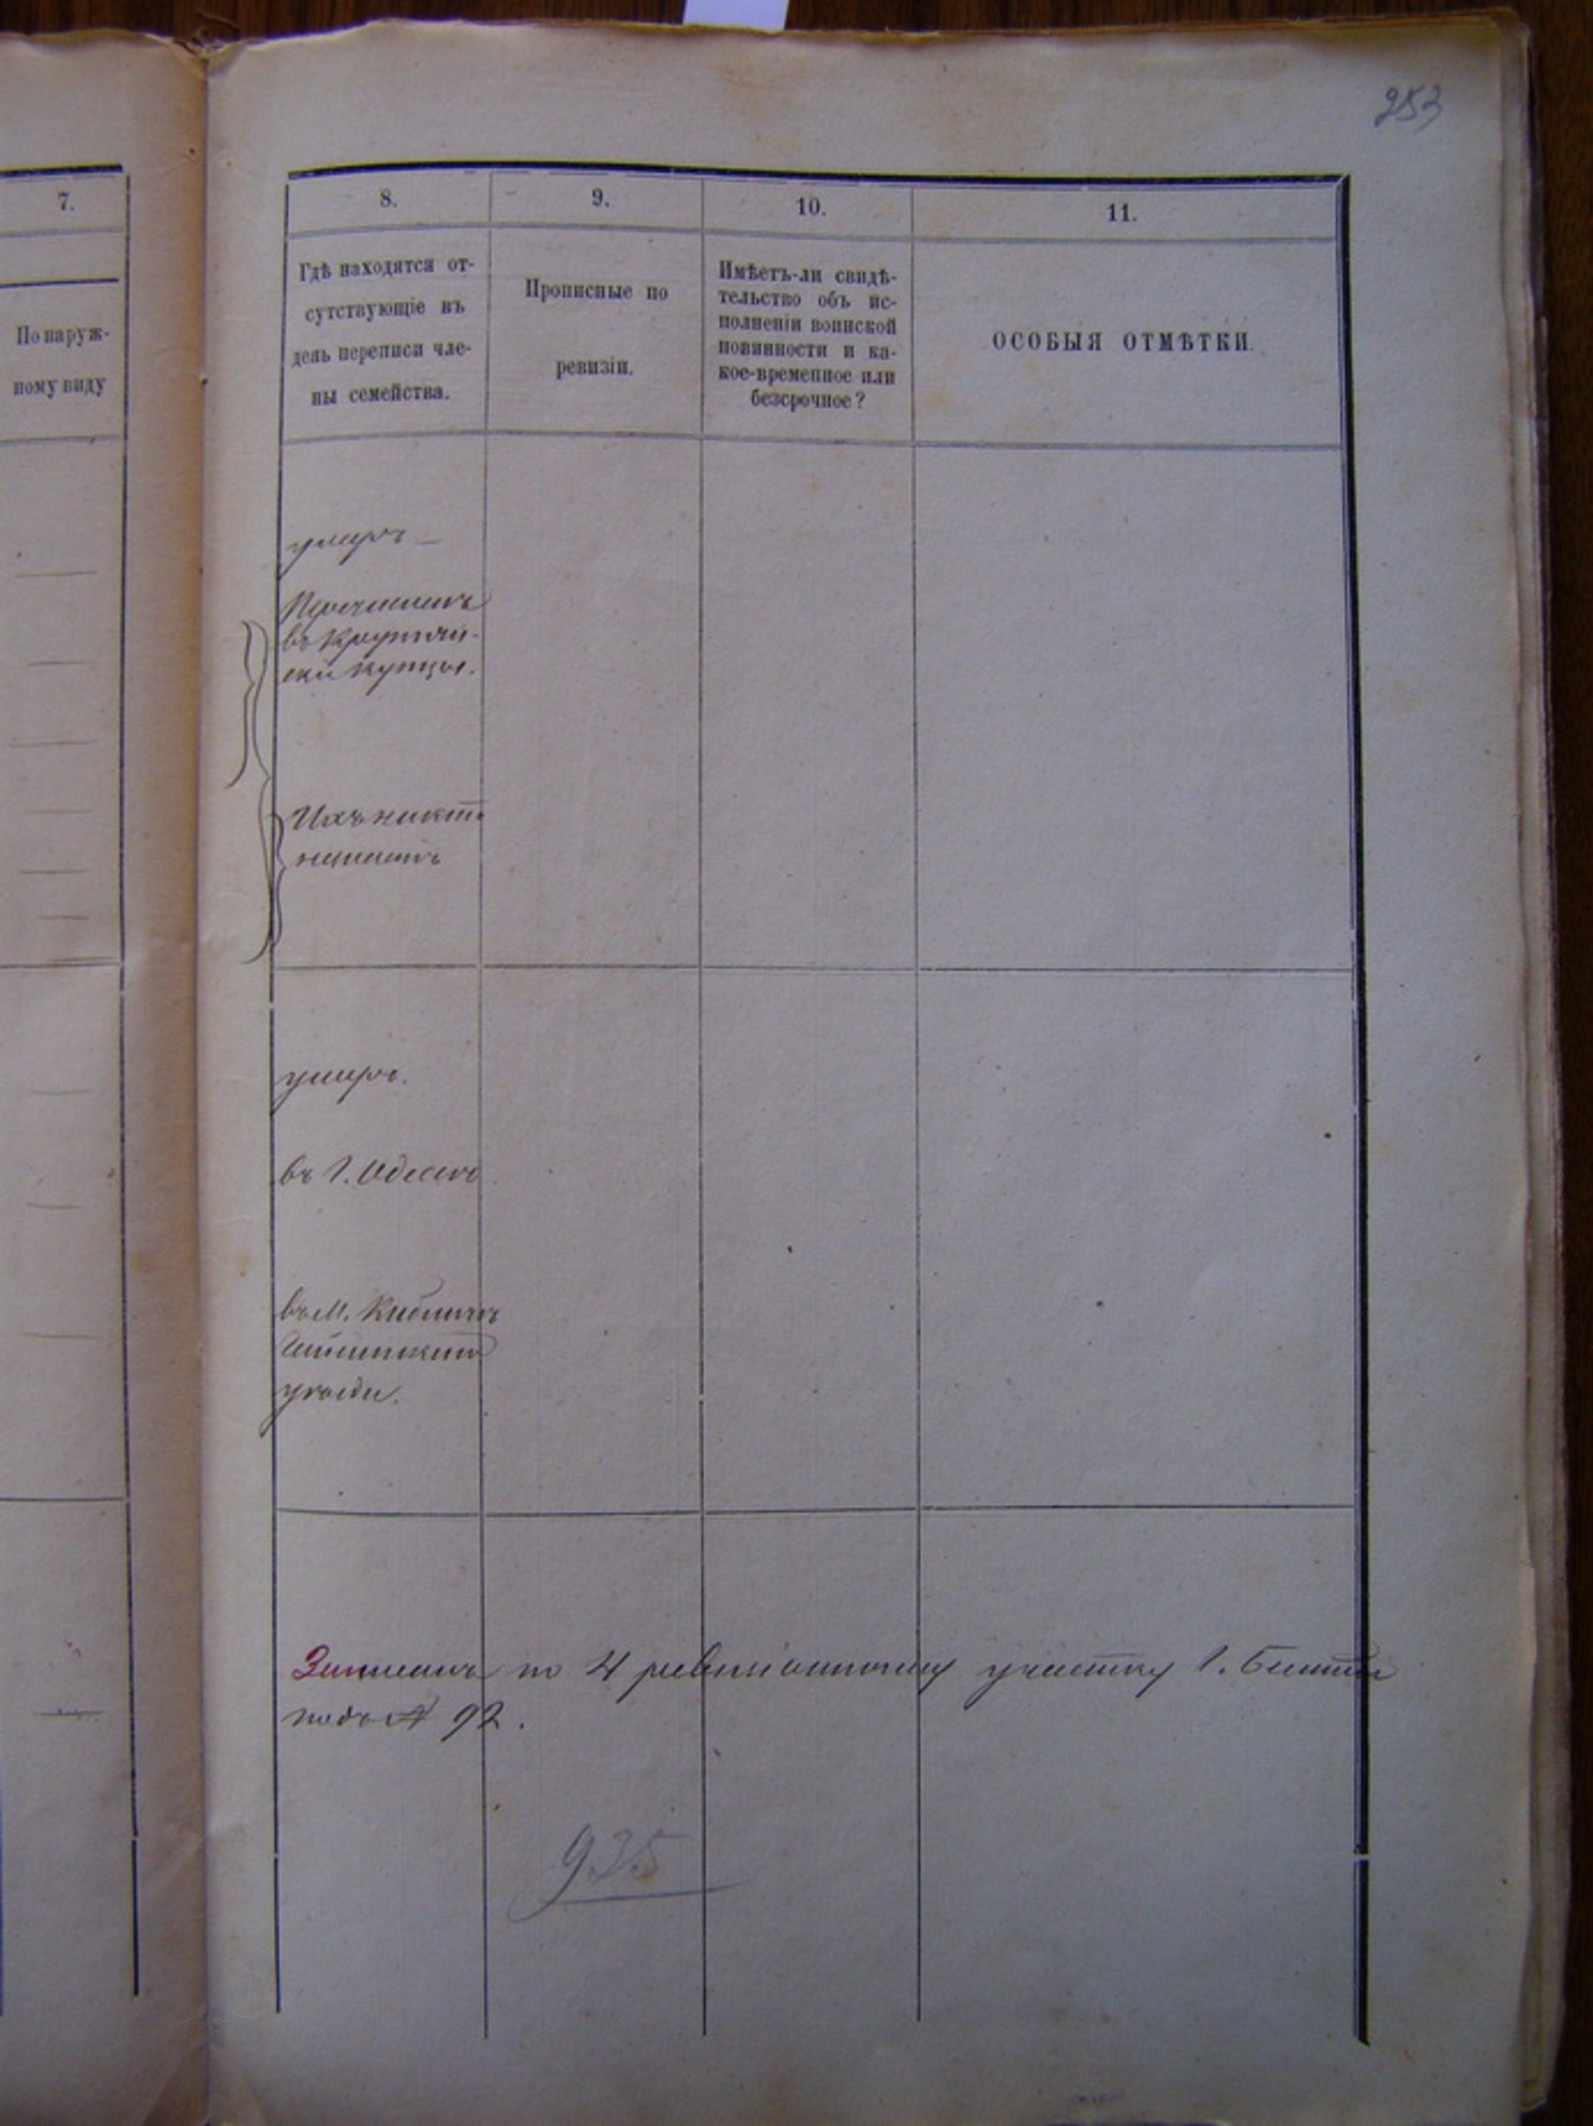 253
7.
По наруж-
ному виду
8.
9.
10.
11.
Гдѣ находятся от-
сутствующіе въ
день переписи чле-
ны семейства.
Прописные по
ревизіи.
Имѣетъ-ли свидѣ-
тельство объ ис-
полненіи воинской
повинности и ка-
кое-временное или
безсрочное?
ОСОБЫЯ ОТМѢТКИ.
умеръ —
Перечисленъ
въ
купцы.
Ихъ никто
незнаетъ
умеръ.
въ Г. Одессѣ
въ м. Кибличѣ
уѣзда.
Записанъ по 4 ревизіонному участку Г.
подъ № 92.
935